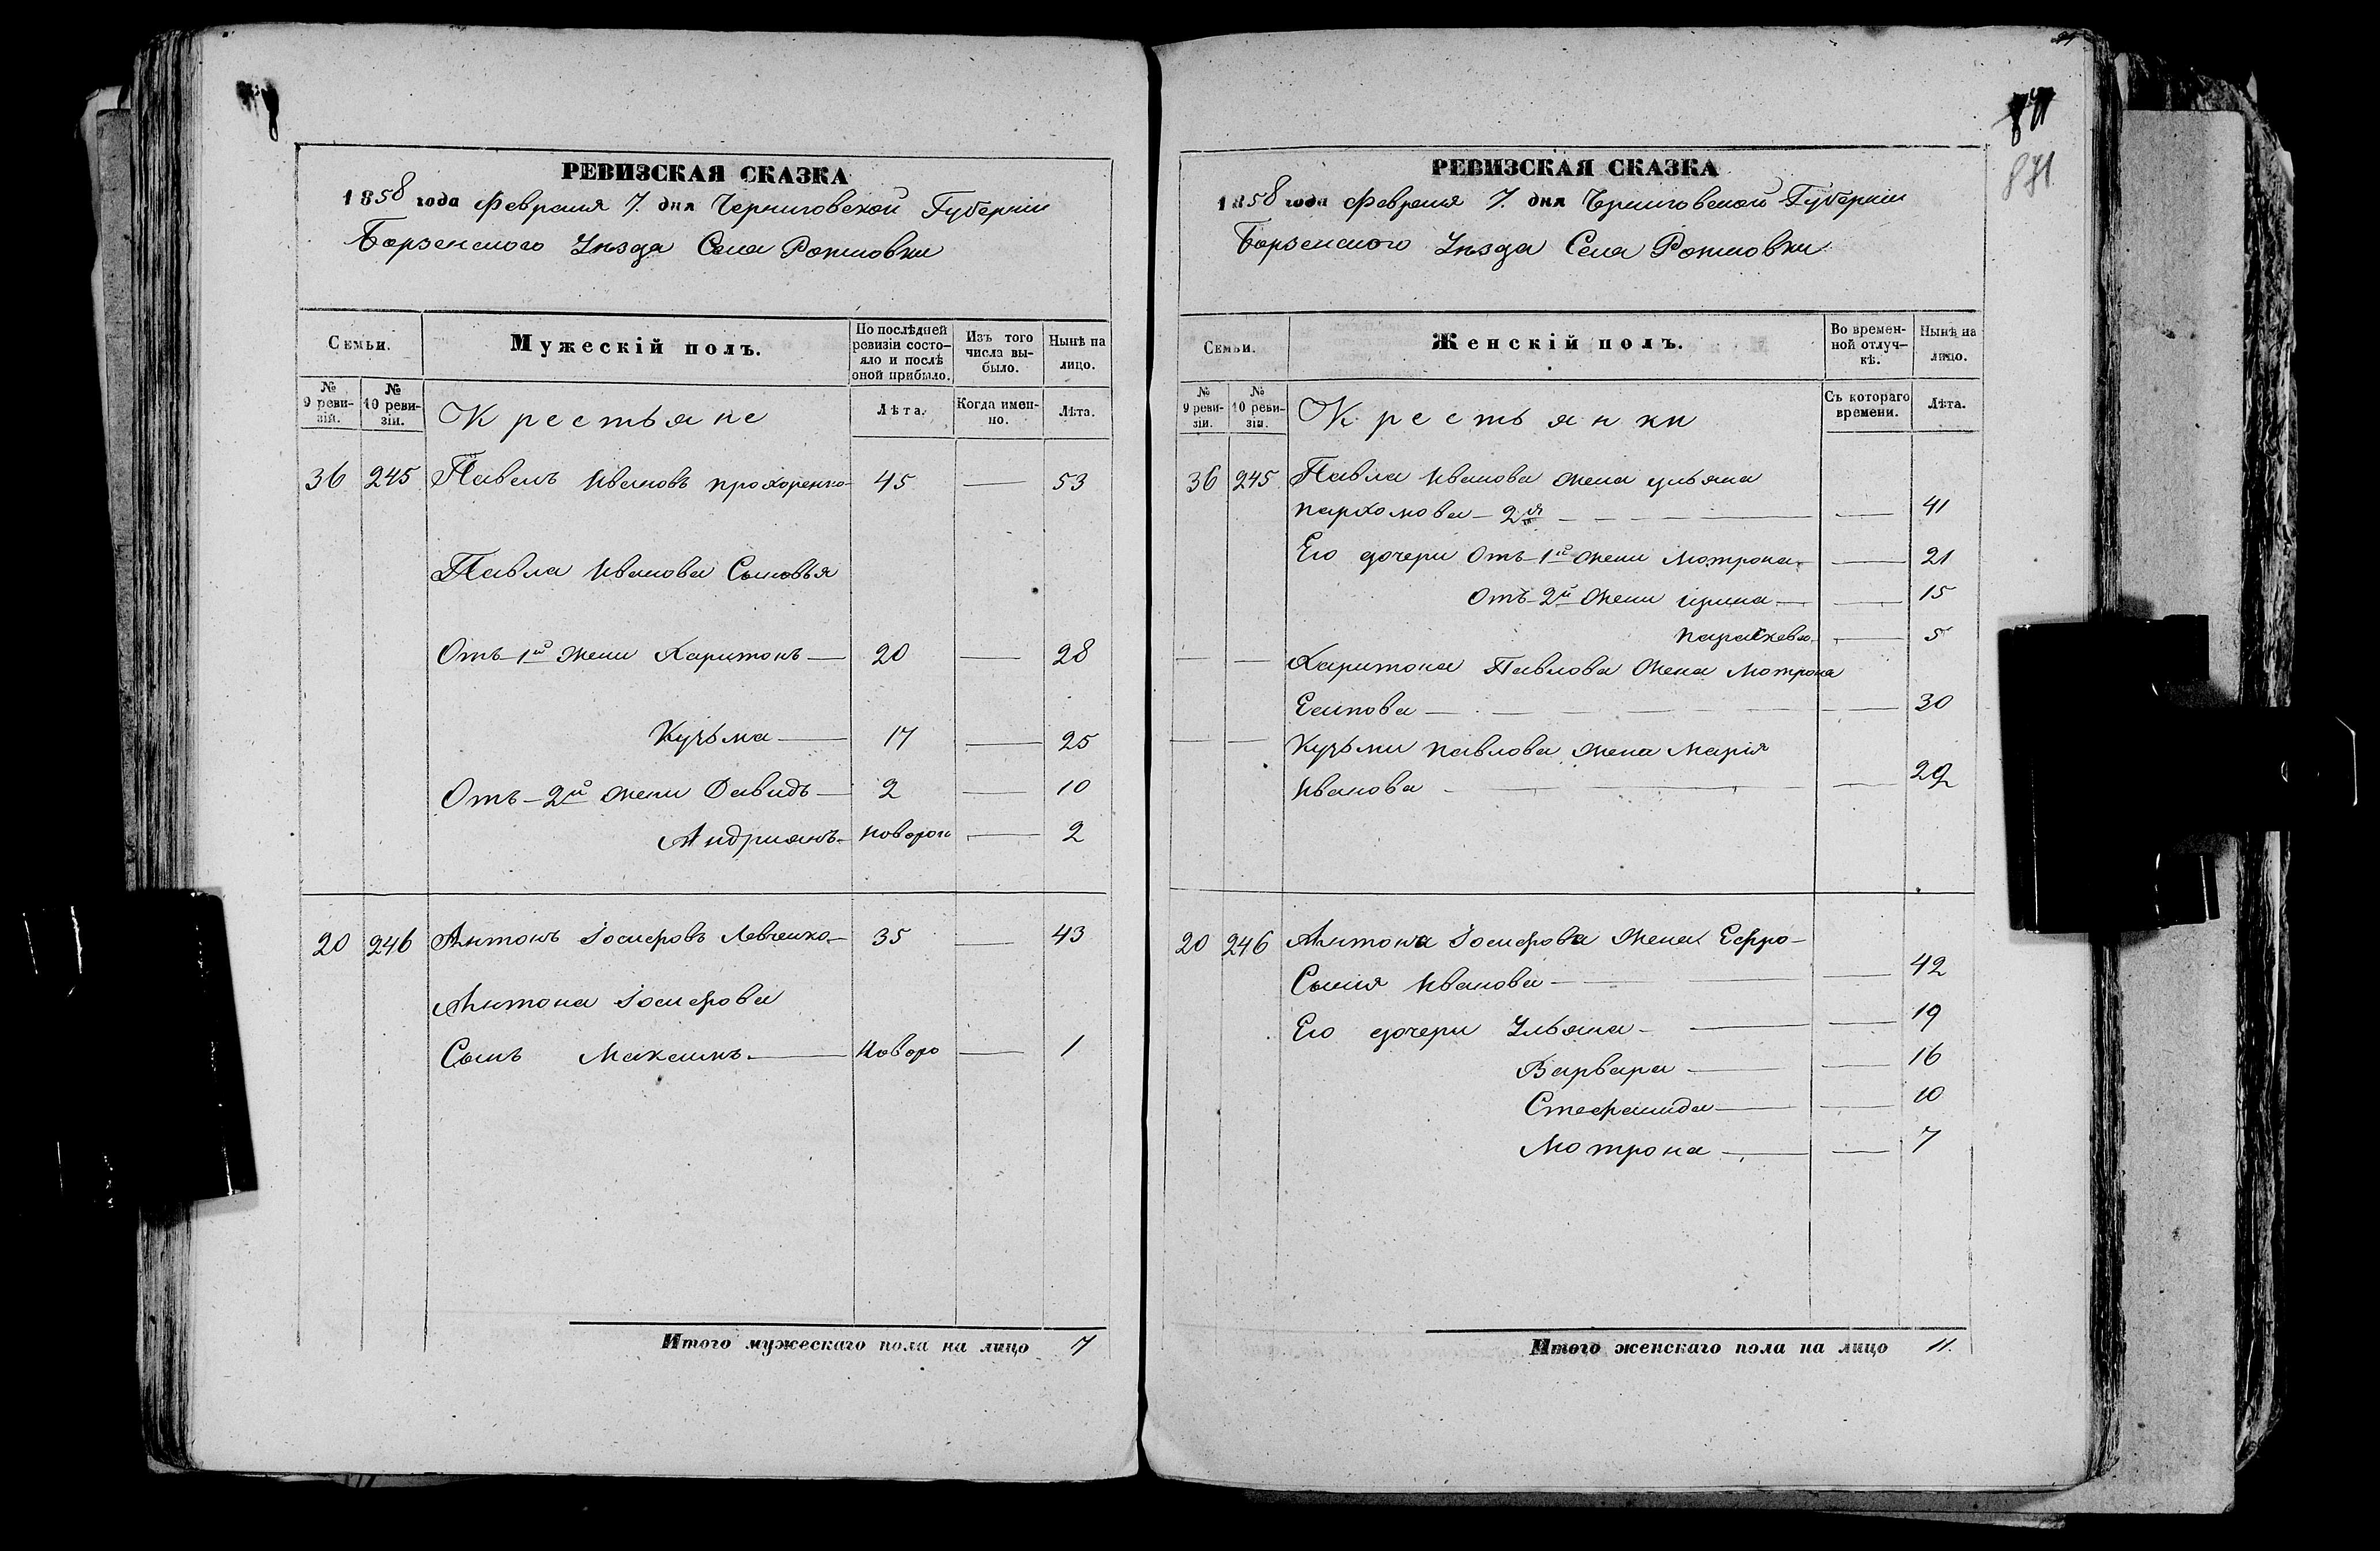 РЕВИЗСКАЯ СКАЗКА
1858 года Февраля 7. дня Черниговской Губерніи
Борзенского Уѣзда Села
Семьи.
Мужескій полъ.
По послѣдней ревизіи состо-
яло и послѣ
оной прибыло.
Изъ того
числа вы-
было.
Нынѣ на
лицо.
№
9 реви-
зіи.
№
10 реви-
зіи.
Крестьяне
Лѣта.
Когда имен-
но.
Лѣта.
36 245 Павелъ Ивановъ прохоренко 45 — 53
Павла Иванова Сыновья
Отъ 1й жени Харитонъ — 20 — 28
Кузьма — 17 — 25
Отъ 2й жени Давидъ — 2 — 10
Андриянъ — новорож — 2
20 246 Антонъ Іосифовъ Левченко — 35 — 43
Антона Іосифова
Сынъ Максимъ — новоро — 1
Итого мужескаго пола на лицо 7
871
РЕВИЗСКАЯ СКАЗКА
1858 года Февраля 7. дня Черниговской Губерніи
Борзенского Уѣзда Села
Семьи.
Женскій полъ.
Во времен-
ной отлуч-
кѣ.
Нынѣ на
лицо.
№
9 реви-
зіи.
№
10 реви-
зіи.
Крестьянки
Съ котораго
времени.
Лѣта.
36 245 Павла Иванова жена ульяна
пархомова — 2я — — 41
Его дочери Отъ 1й жени Мотрона — — 21
Отъ 2й жени ирина — — 15
параскева — — 5
— — Харитона Павлова жена Мотрона
Есипова — — 30
— — Кузьми павлова жена Марія
Иванова — — 22
20 246 Антона Іосифова жена Ефро-
Сыния Иванова — — 42
Его дочери Ульяна — — 19
Варвара — — 16
Стефанида — — 10
Мотрона — — 7
Итого женскаго пола на лицо 11.